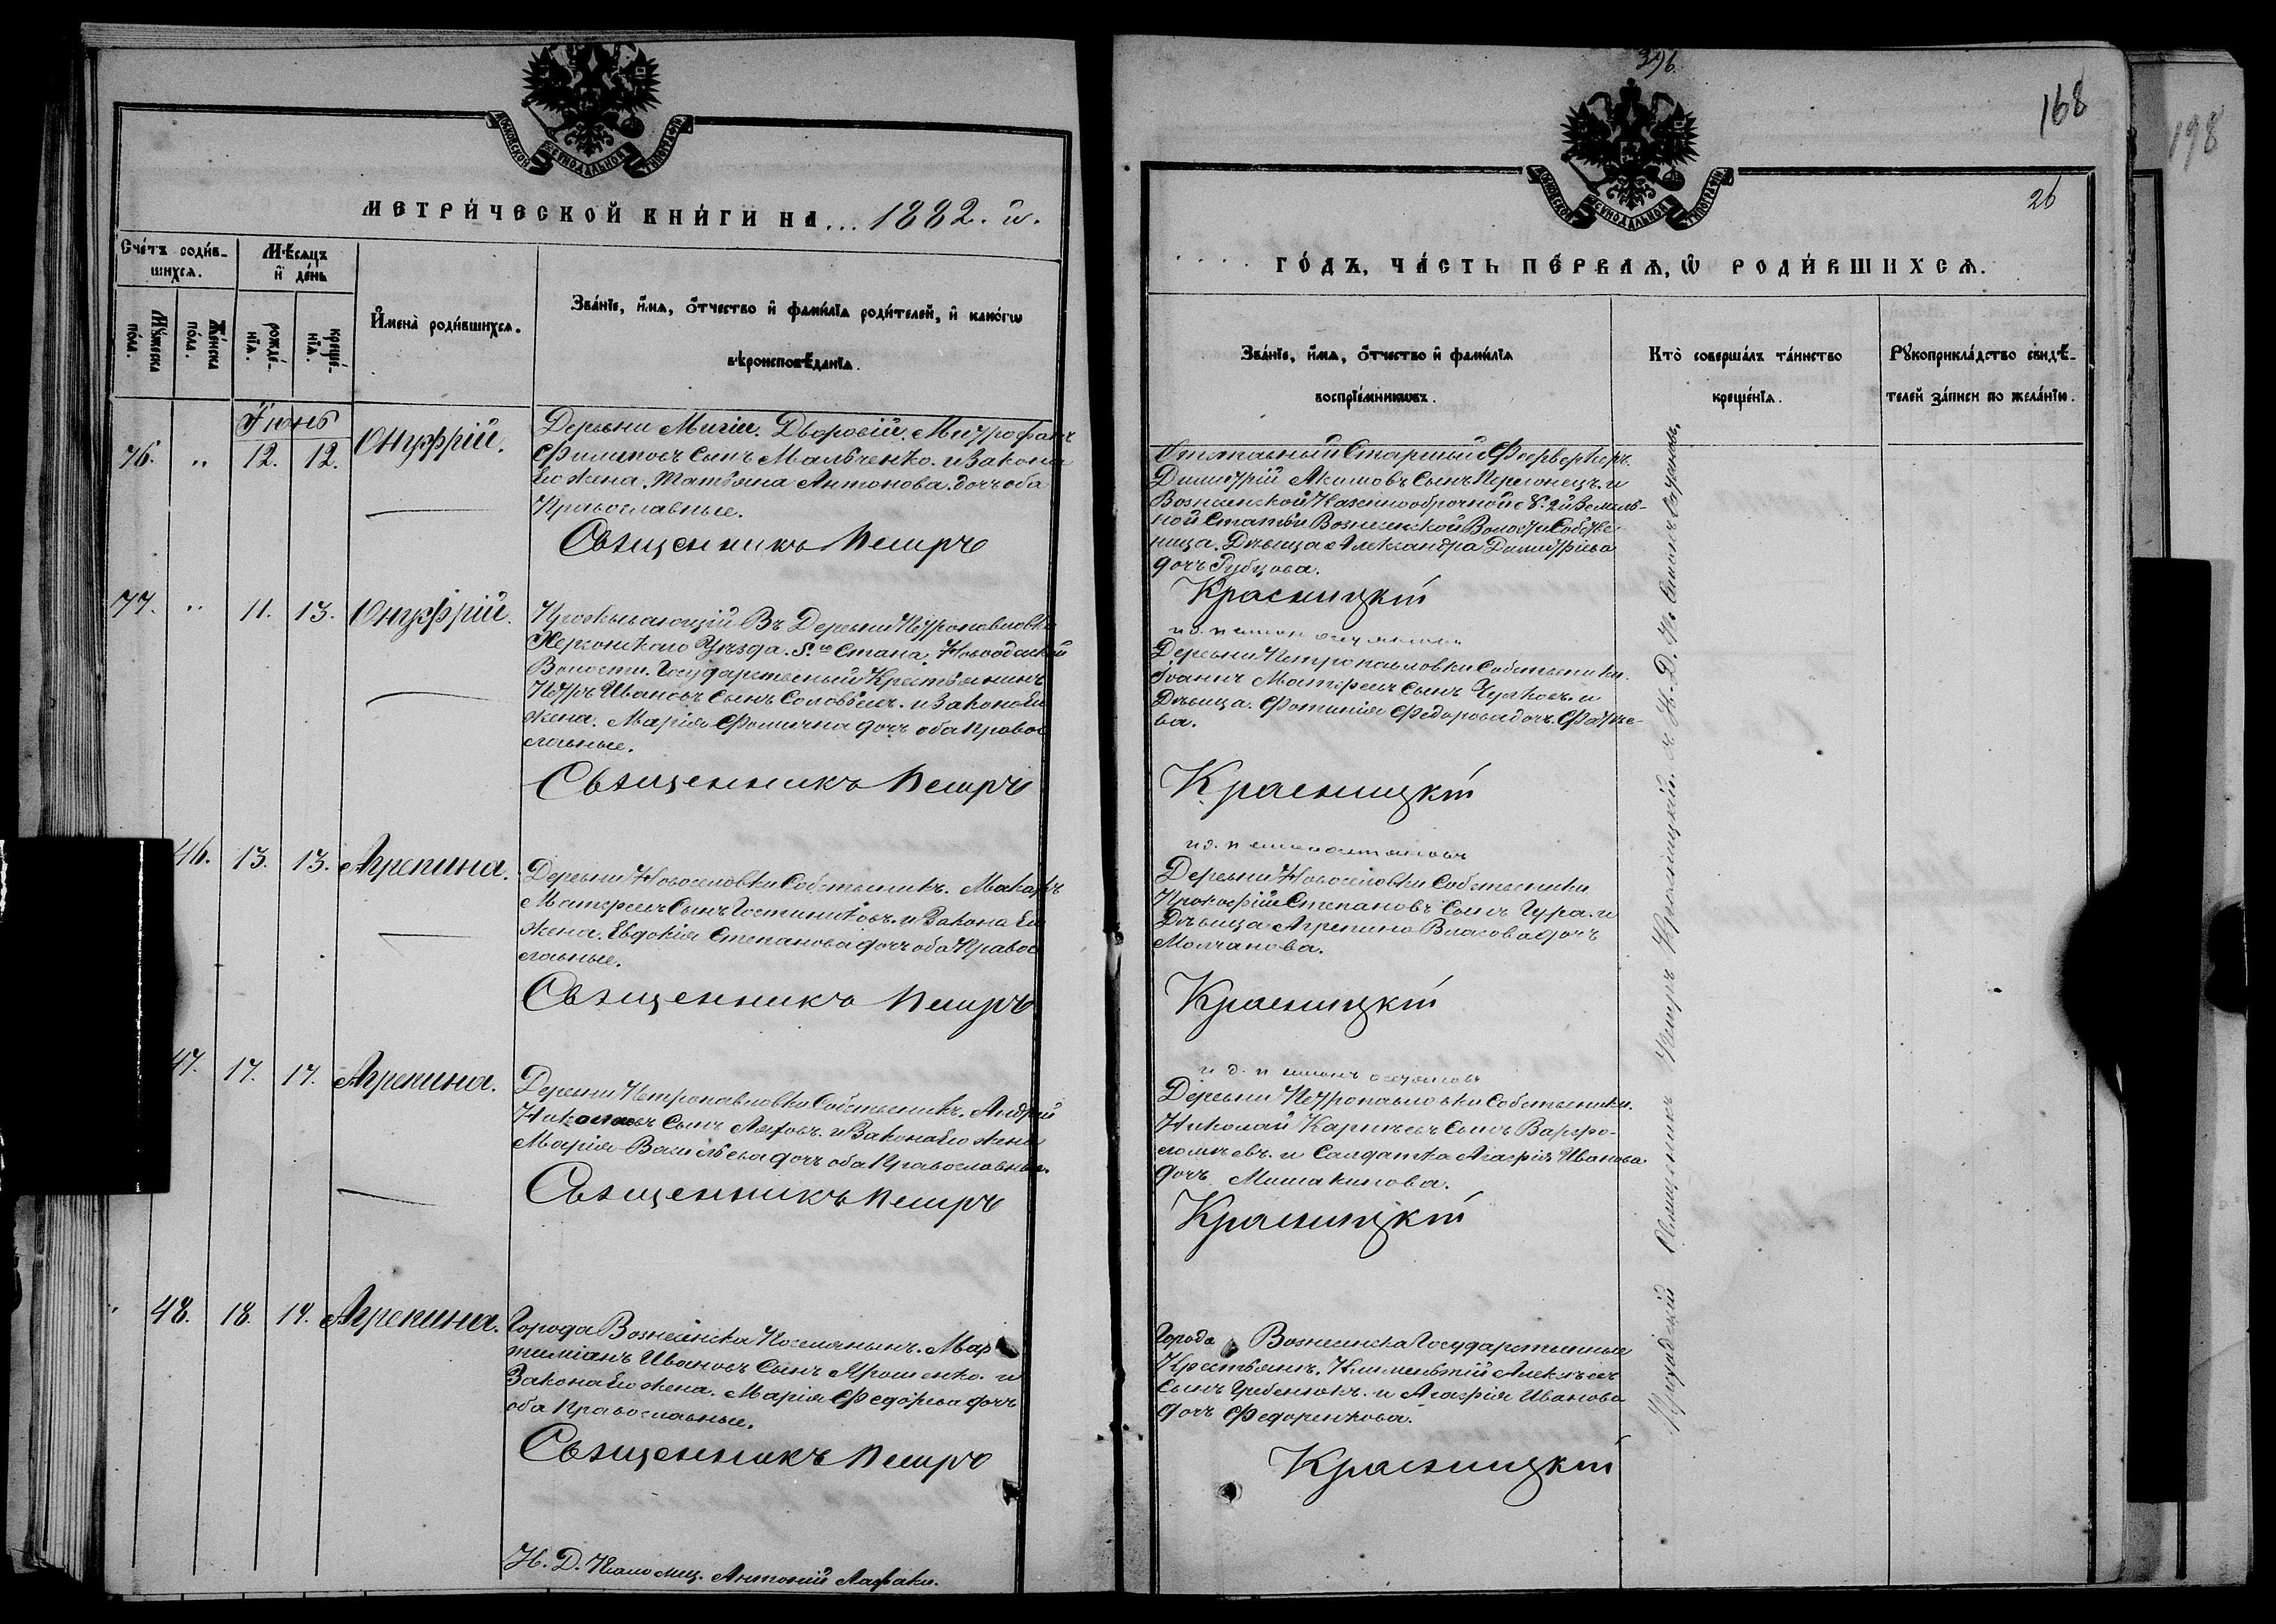 МОСКОВСКОЙ СѴНОДАЛЬНОЙ ТИПОГРАФІИ
МЕТРИ́ЧЕСКОЙ КНИ́ГИ НА ... 1882. й.
Сче́тъ роди́в-
шихся.
Мѣсяцъ
и҆ де́нь
Мꙋ́жеска
по́ла.
Же́нска
по́ла.
рожде́-
нїѧ.
креще́-
нїѧ.
И҆мена̀ роди́вшихсѧ.
Зва́нїе, и҆́мѧ, ѻ҆́тчество и҆ фами́лїѧ роди́телей, и҆ како́гѡ
вѣроисповѣ́данїѧ.
Іюнь
76. " 12. 12. Онуфрій.
Деревни Мигіи. Дворовій. Митрофанъ
Филиповъ Сынъ Мальченко. и Закона
Его жена. Татьяна Антонова. дочь оба
Православные.
Священникъ Петръ
77. " 11. 13. Онуфрій.
Проживающій Въ Деревни Петропавловки
Херсонскаго Уѣзда. 5.го Стана. Новоодеской
Волости. Государственый Крестьянинъ
Петръ Ивановъ Сынъ Соловьевъ. и Закона Его
жена. Марія Фомична дочь оба Право
славные.
Священникъ Петръ
46. 13. 13. Агрепина.
Деревни Новоселовки Собственикъ. Макаръ
Матфеевъ Сынъ Гостиниковъ. и Закона Его
жена. Евдокія Степанова дочь оба Право
славные.
Священникъ Петръ
47. 17. 17. Агрепина.
Деревни Петропавловки Собственикъ. Андрей
Николаевъ Сынъ Ляховъ. и Закона Его жена
Марія Васильева дочь оба Православные.
Священникъ Петръ
48. 18. 19. Агрепина.
Города Вознесенска Поселянинъ. Мар
тиміанъ Ивановъ Сынъ Ярошенко. и
Закона Его жена. Марія Федорова дочь
оба Православные.
Священникъ Петръ
Н. Д. Псаломщ. Антоній
396.
168
198
26
МОСКОВСКОЙ СѴНОДАЛЬНОЙ ТИПОГРАФІИ
.... ГО́ДЪ, ЧА́СТЬ ПЕ́РВАѦ, Ѡ҆ РОДИ́ВШИХСѦ.
Зва́нїе, и҆́мѧ, ѻ҆́тчество и҆ фами́лїѧ
воспрїе́мникѡвъ.
Кто̀ соверша́лъ та́инство
креще́нїѧ.
Рꙋкоприкла́дство свидѣ́-
телей за́писи по жела́нїю.
Отставный Старшій Фіерверкеръ.
Димитрій Акимовъ Сынъ Перегонецъ. и
Вознесенской Казеннооброчной 2й Земель-
ной Статьи Вознесенской Волости Собстве-
ница. Дѣвица Александра Димитріева
дочь Губцова.
Красницкій
Деревни Петропавловки Собственики.
Іоаннъ Матфеевъ Сынъ Чулковъ. и
Дѣвица. Фотинія Федорова дочь.
ва.
Красницкій
Деревни Новоселовки Собственики
Прокофій Степановъ Сынъ Гура. и
Дѣвица Агрепина Власова дочь
Молчанова.
Красницкій
Деревни Петропавловки Собственики.
Николай Карпѣевъ Сынъ Варфо-
ломѣевъ. и Салдатка Агафія Иванова
дочь. Мишакинова.
Красницкій
Города Вознесенска Государственые
Крестьяне. Климентій Алексѣевъ
Сынъ Гребенюкъ. и Агафія Иванова
дочь Федоренкова.
Красницкій
Священникъ Петръ Красницкій. съ И. Д. Пс.